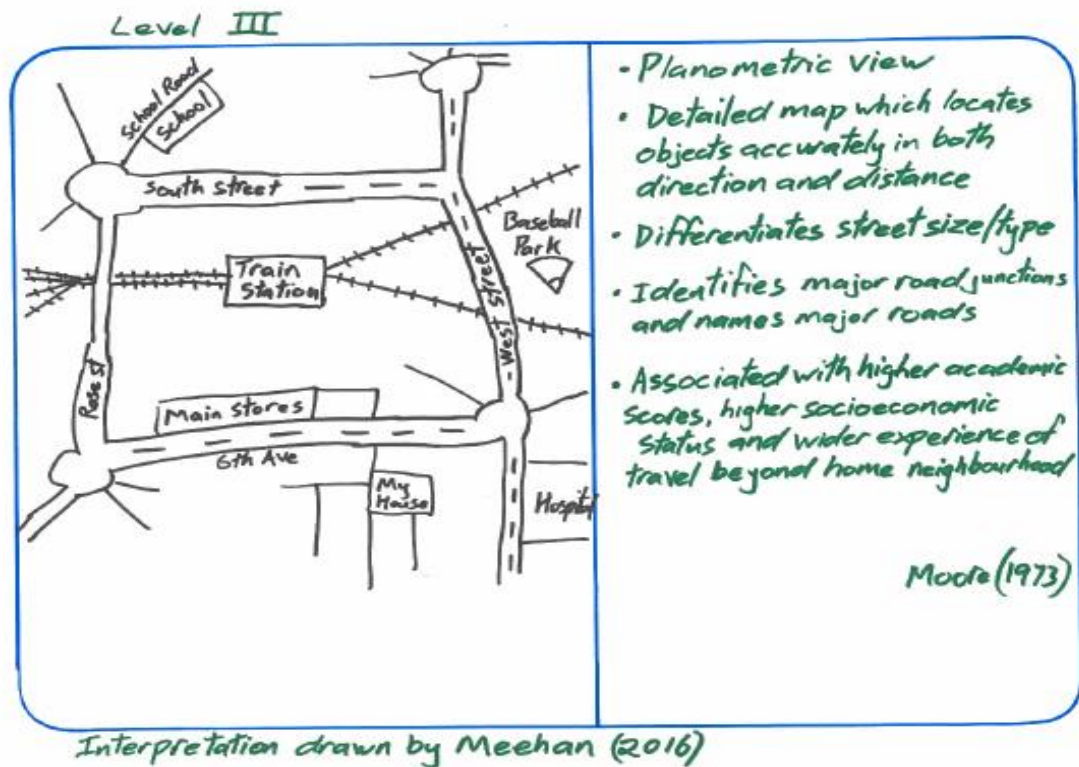 Level III
School Road
School
South Street
Baseball
Park
Train
Station
West Street
Rose st
Main Stores
6th Ave
My
House
Hospital
• Planometric view
• Detailed map which locates
objects accurately in both
direction and distance
• Differentiates street size/type
• Identifies major road junctions
and names major roads
• Associated with higher academic
scores, higher socioeconomic
status and wider experience of
travel beyond home neighbourhood
Moore (1973)
Interpretation drawn by Meehan (2016)